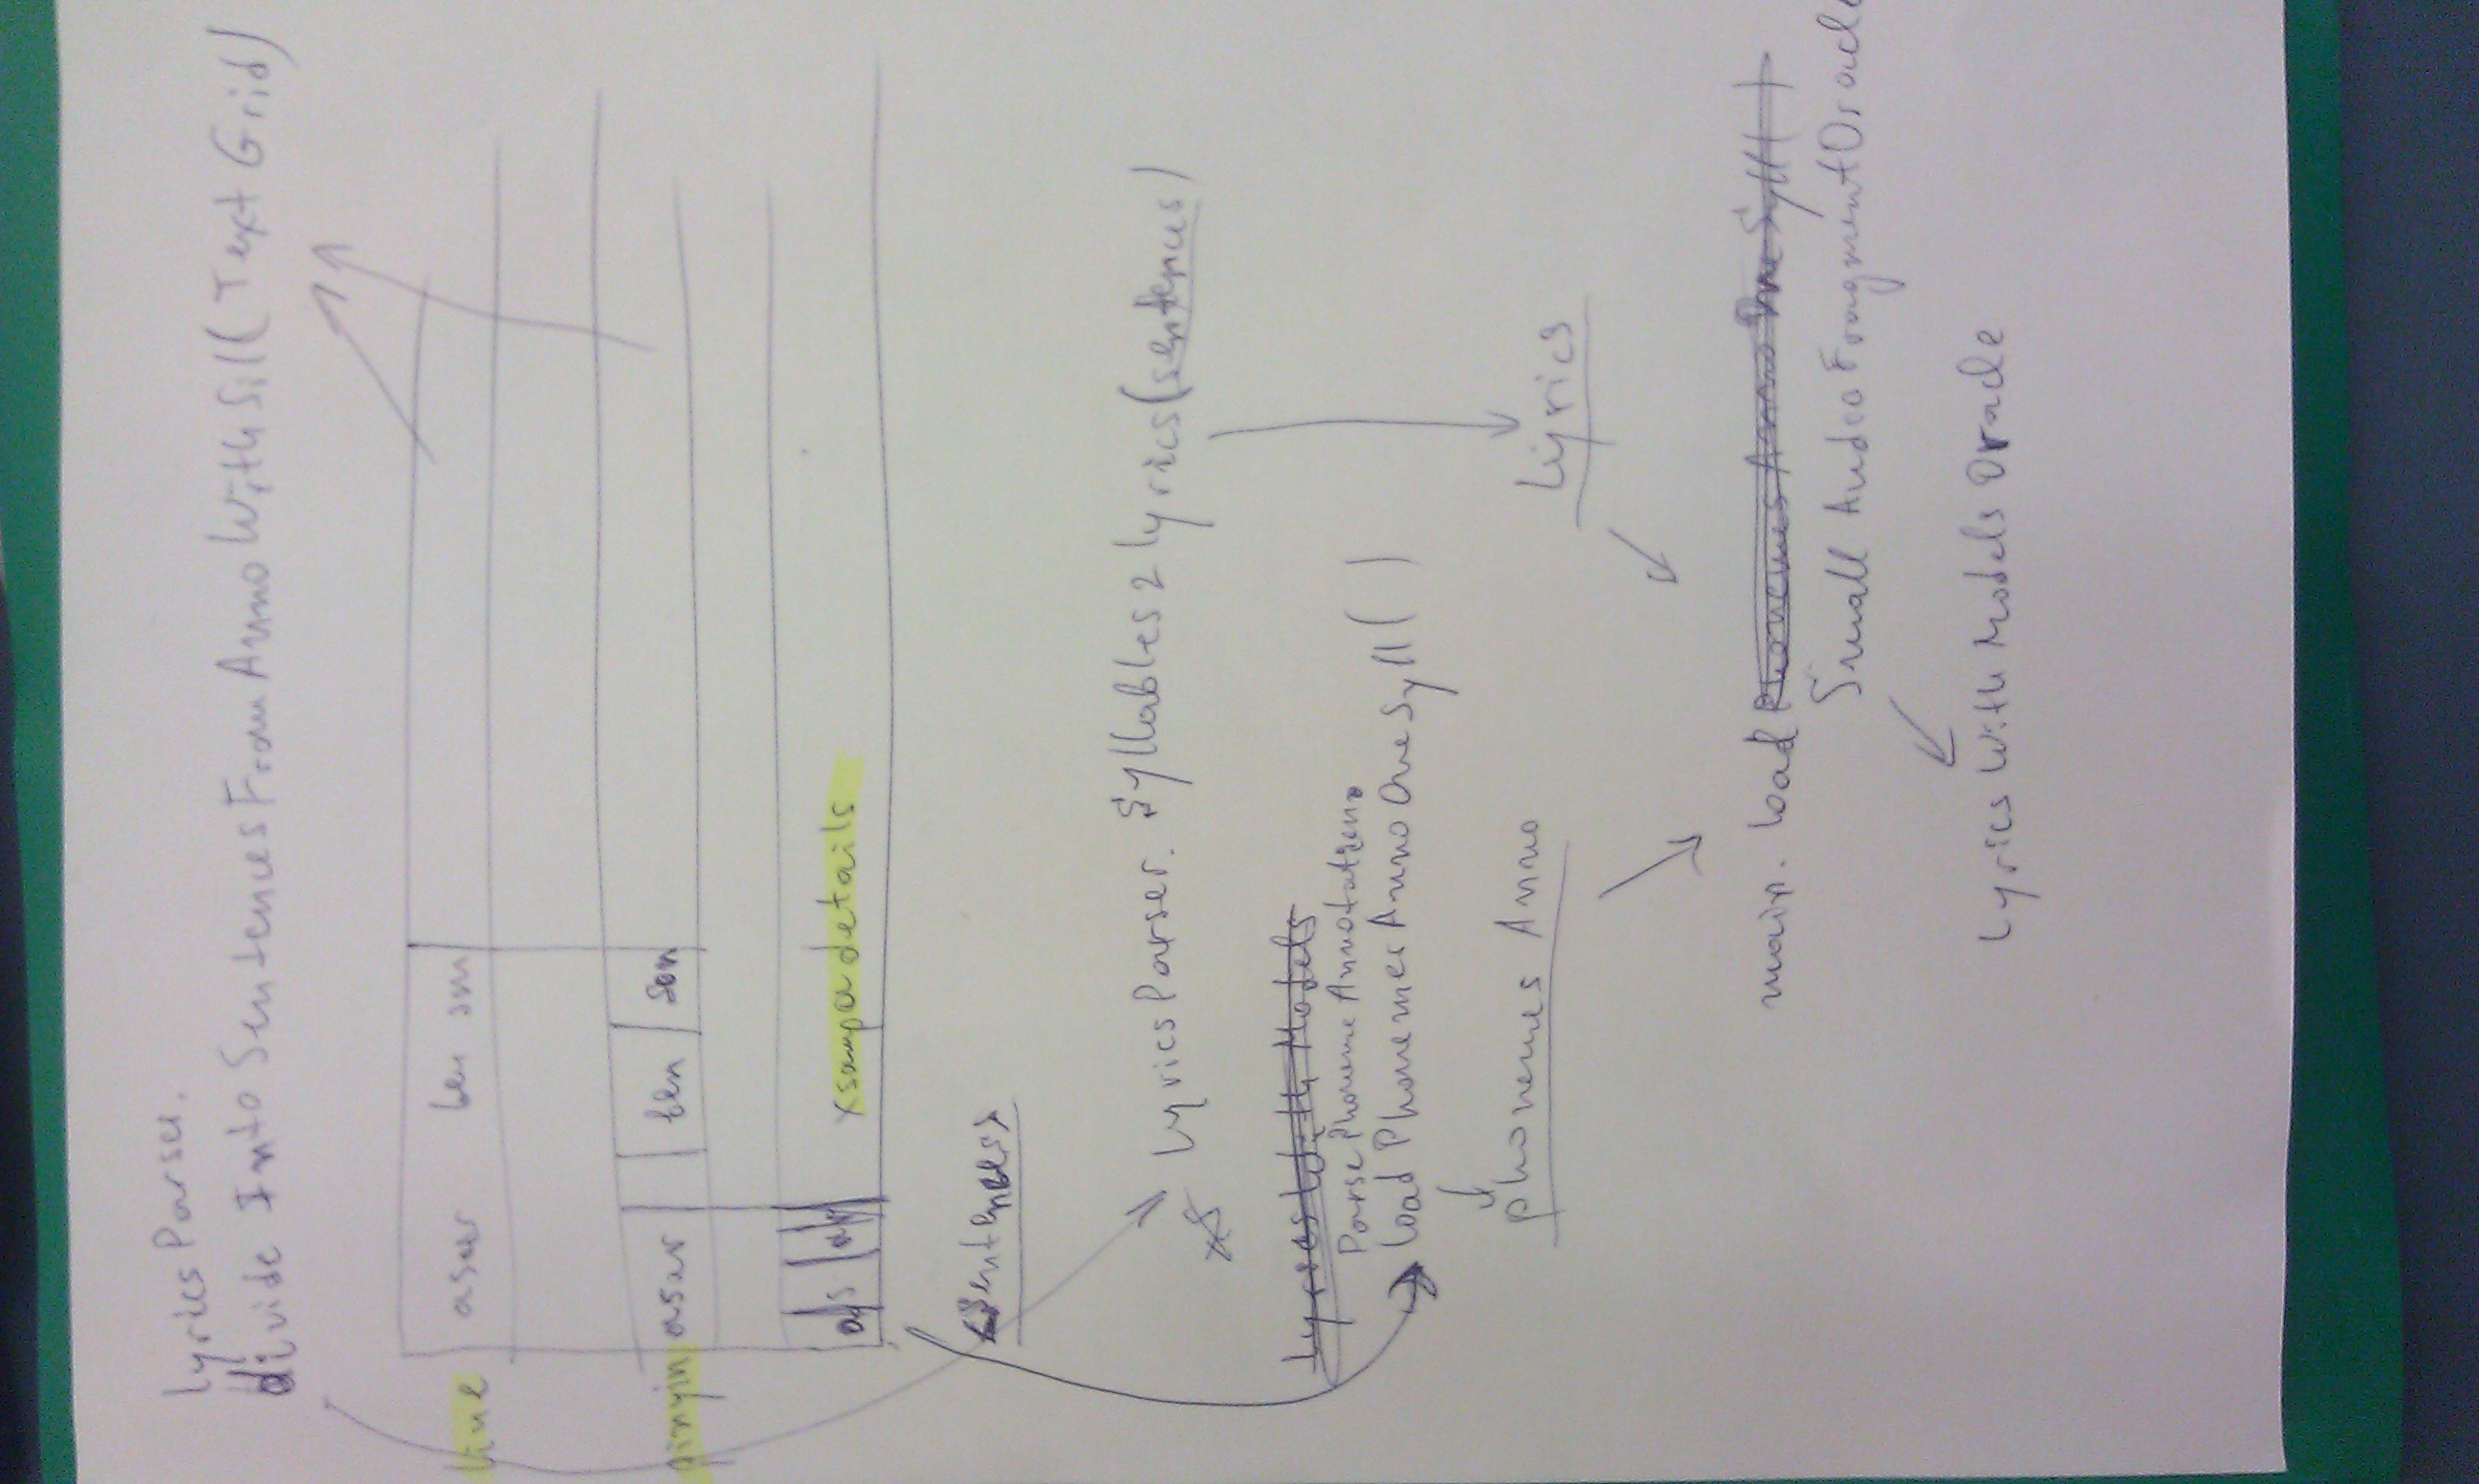 Lyrics Parser.
divide Into Sentences From Anno With Sil (Text Grid)
line
asar ben sm
pinyin
asar ben son
xsampadetails
as
sentences
Lyrics Parser. Syllables 2 Lyrics (sentences)
Lyrics With Models
Parse Phoneme Annotation
load Phonemes Anno One Syll ( )
Lyrics
phonemes Anno
main. load Phonemes Anno One Syll
Small Audio Fragment Oracle
Lyrics With Models Oracle